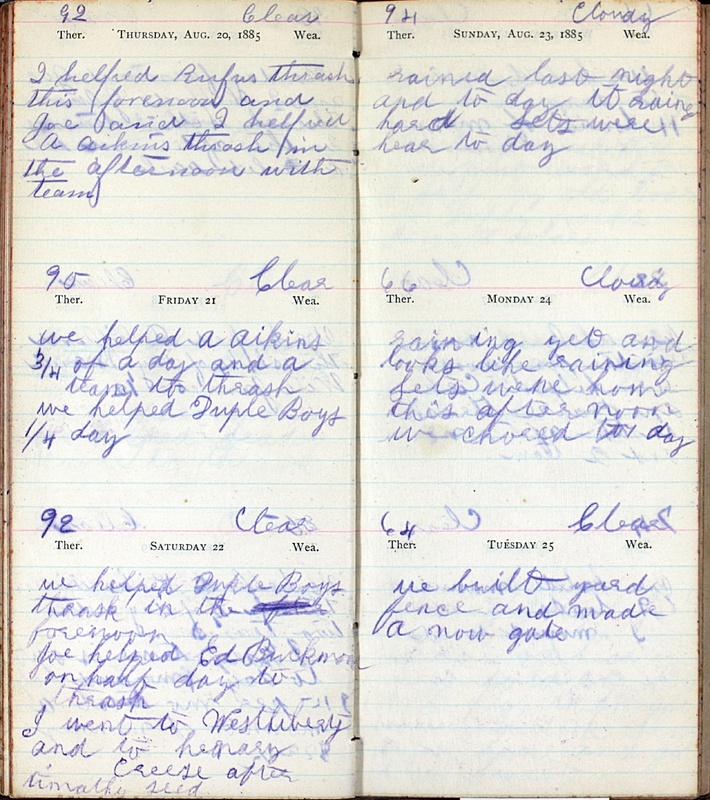 92 Clear
Ther. THURSDAY, AUG. 20, 1885 Wea.
I helped Rufus thrash
this forenoon and
Joe and I helped
A Aikins thrash in
the afternoon with
team
90 Clear
Ther. FRIDAY 21 Wea.
we helped A Aikins
3/4 of a day and a
team to thrash
we helped Tuple Boys
1/4 day
92 Clear
Ther. SATURDAY 22 Wea.
we helped Tuple Boys
thrask in the
forenoon
Joe helped Ed Buckmon
on half day to
thrash
I went to Westubery
and to
Creese after
timathy seed
94 Cloudy
Ther. SUNDAY, AUG. 23, 1885 Wea.
rained last night
and to day It rains
hard sets were
hear to day
66 Cloudy
Ther. MONDAY 24 Wea.
raining yet and
looks like raining
sets went home
this after noon
we chored to day
64 Clear
Ther. TUESDAY 25 Wea.
we built yard
fence and made
a now gate